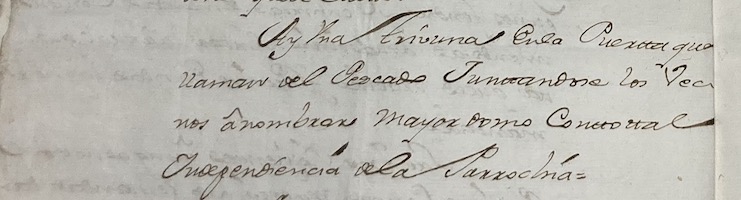 Ay Vna Trivuna En la Puertta que
llaman del Pescado Junttandose los Veci
nos â nombrar Mayordomo Con ttottal
Independiencia de la Parrochia=